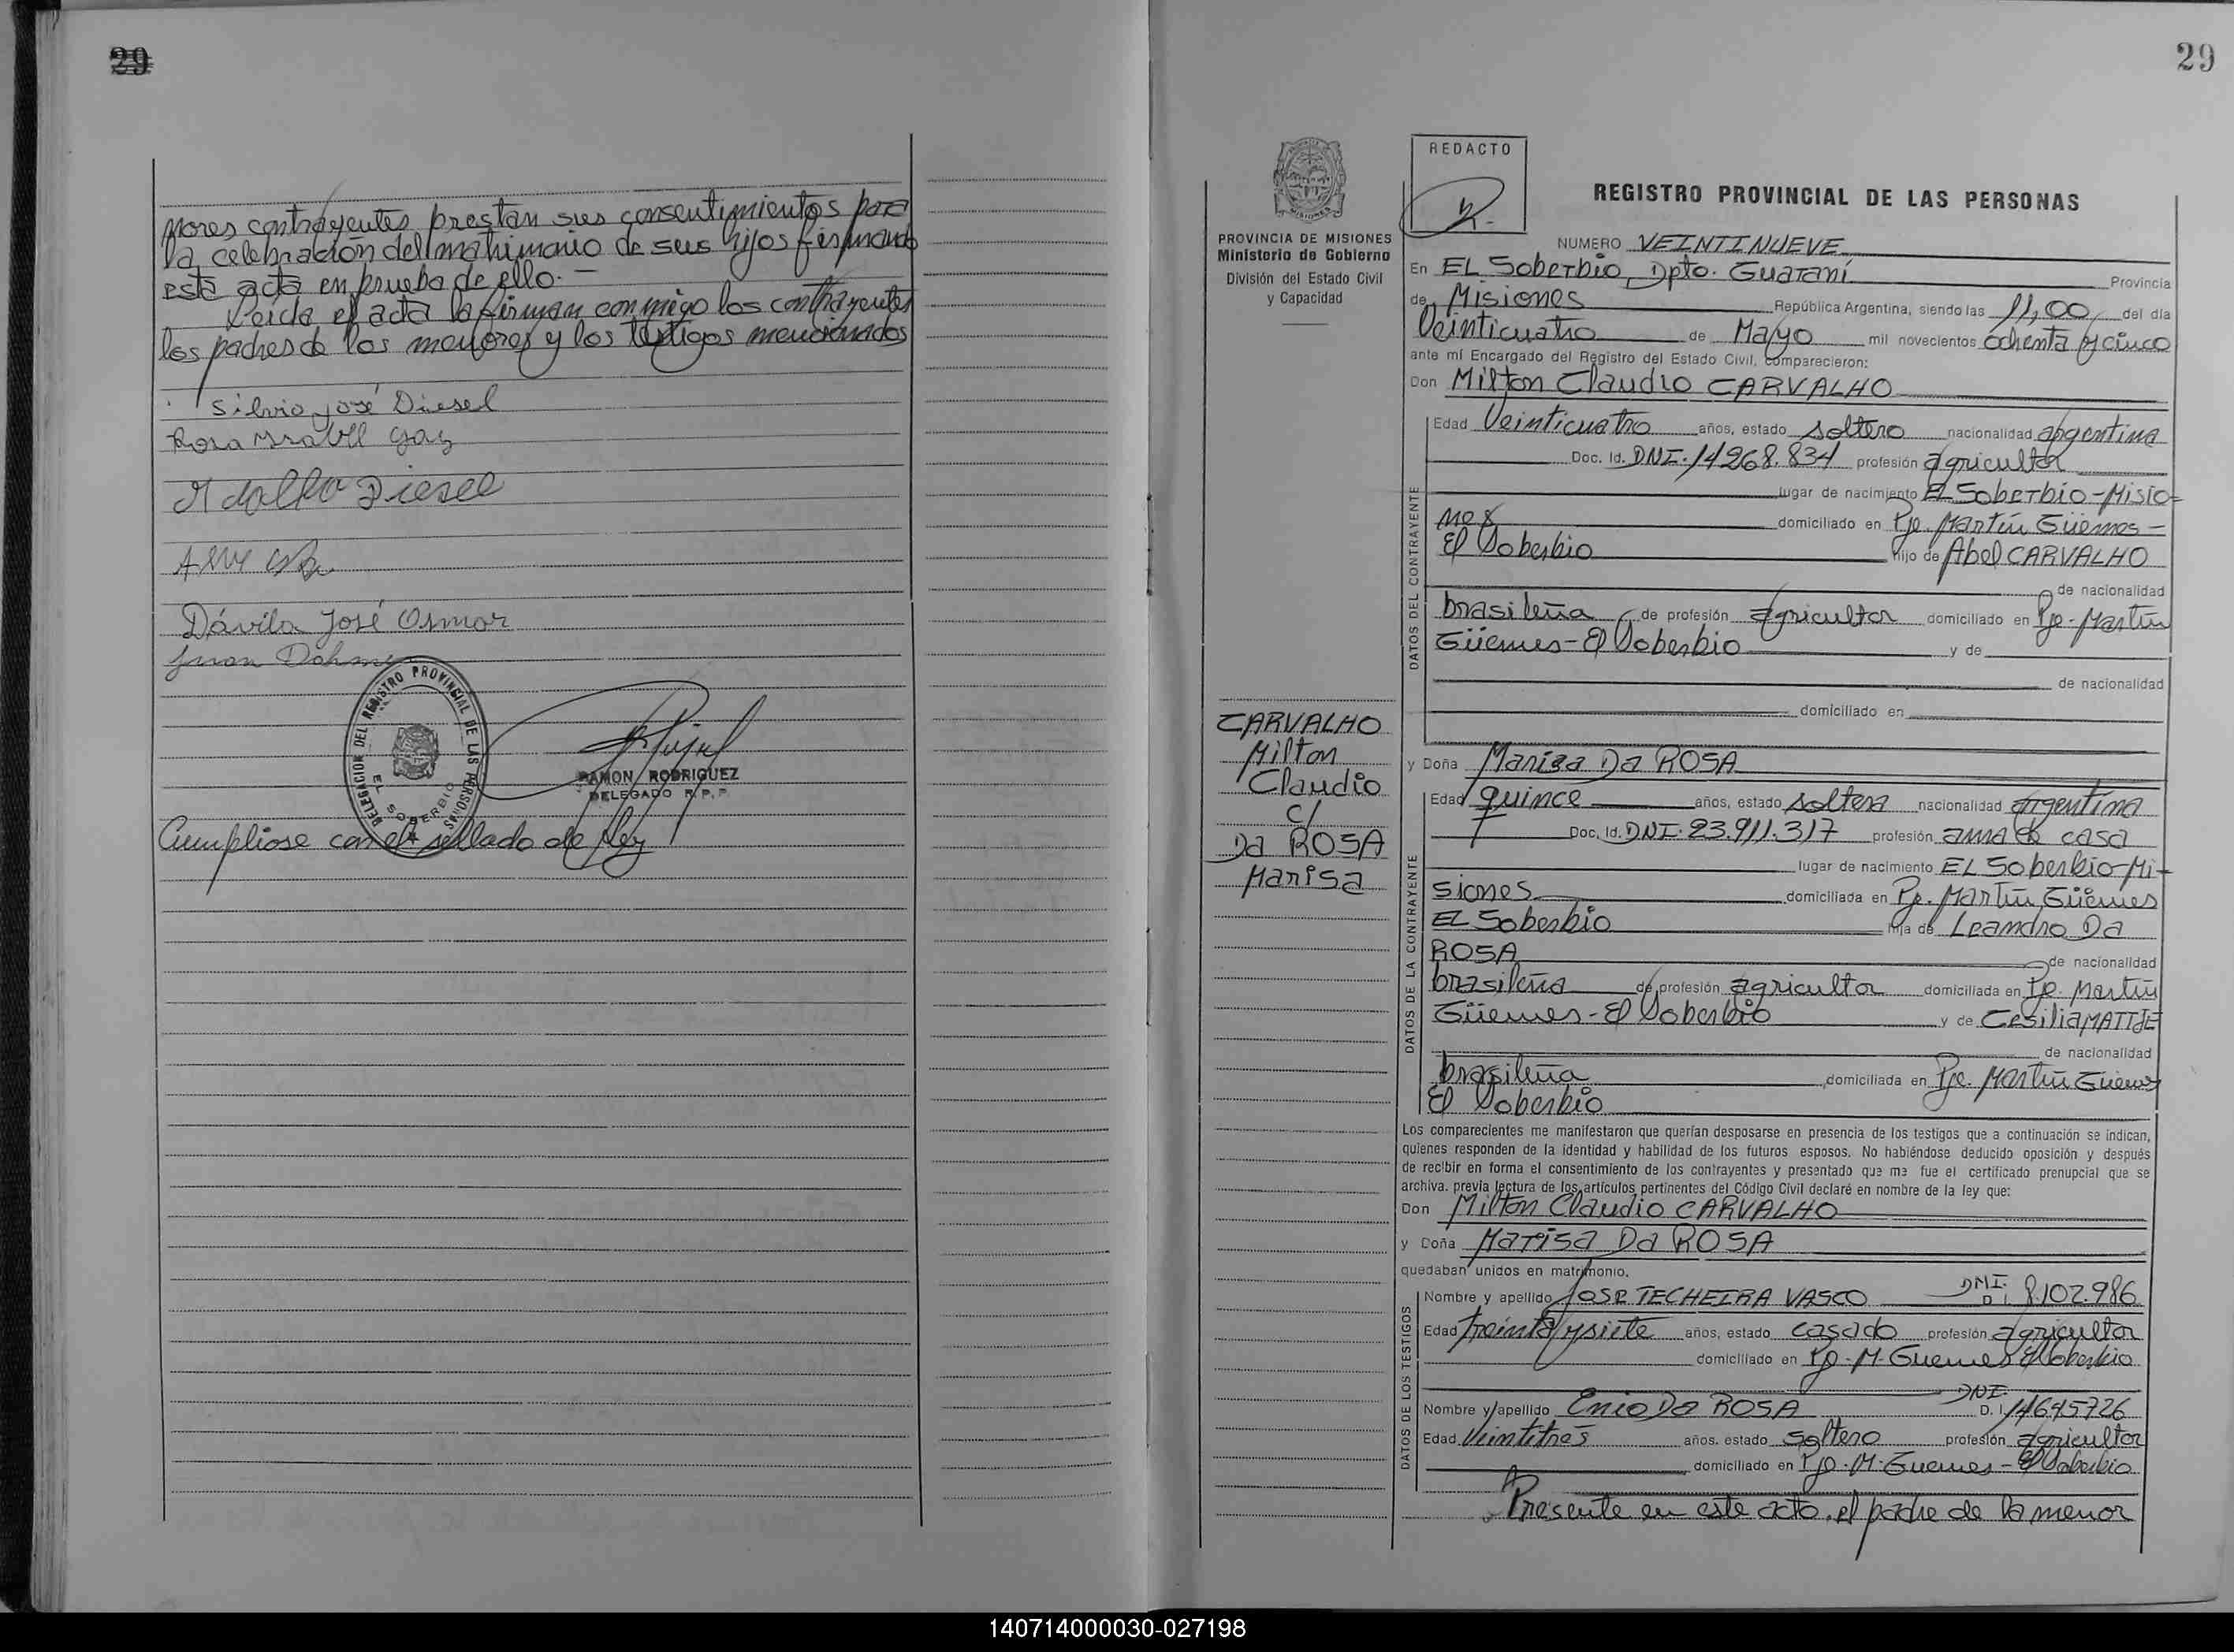 29
nores contrayentes prestan sus consentimientos para
la celebración del matrimonio de sus hijos firmando
esta acta en prueba de ello. —
Leída el acta la firman conmigo los contrayentes
los padres de los menores y los testigos mencionados
Silvio José Diesel
Rosa
Adolfo Diesel
Dávila José Osmar
Juan Dohmer
DELEGACION DEL REGISTRO PROVINCIAL DE LAS PERSONAS
EL SOBERBIO
RAMON RODRIGUEZ
DELEGADO R.P.P.
Cumpliose con el sellado de ley
29
REDACTO
PROVINCIA DE MISIONES
Ministerio de Gobierno
División del Estado Civil
y Capacidad
CARVALHO
Milton
Claudio
c/
Da ROSA
Marisa
REGISTRO PROVINCIAL DE LAS PERSONAS
NUMERO VEINTINUEVE
En EL Soberbio, Dpto. Guaraní Provincia
de Misiones República Argentina, siendo las 11,00 del día
Veinticuatro de Mayo mil novecientos ochenta y cinco
ante mí Encargado del Registro del Estado Civil, comparecieron:
Don Milton Claudio CARVALHO
DATOS DEL CONTRAYENTE
Edad Veinticuatro años, estado soltero nacionalidad argentina
Doc. Id. DNI. 14268.834 profesión agricultor
lugar de nacimiento EL Soberbio-Misio-
nes domiciliado en Pje. Martín Güemes -
El Soberbio hijo de Abel CARVALHO
de nacionalidad
brasileña de profesión agricultor domiciliado en Pje. Martín
Güemes - El Soberbio y de
de nacionalidad
domiciliado en
y Doña Marisa Da ROSA
DATOS DE LA CONTRAYENTE
Edad quince años, estado soltera nacionalidad argentina
Doc. Id. DNI. 23.911.317 profesión ama de casa
lugar de nacimiento EL Soberbio-Mi-
siones domiciliada en Pje. Martín Güemes
EL Soberbio hija de Leandro Da
ROSA de nacionalidad
brasileña de profesión agricultor domiciliada en Pje. Martín
Güemes - El Soberbio y de Cesilia MATTJE
de nacionalidad
brasileña domiciliada en Pje. Martín Güemes
El Soberbio
Los comparecientes me manifestaron que querían desposarse en presencia de los testigos que a continuación se indican,
quienes responden de la identidad y habilidad de los futuros esposos. No habiéndose deducido oposición y después
de recibir en forma el consentimiento de los contrayentes y presentado que me fue el certificado prenupcial que se
archiva. previa lectura de los artículos pertinentes del Código Civil declaré en nombre de la ley que:
Don Milton Claudio CARVALHO
y Doña Marisa Da ROSA
quedaban unidos en matrimonio.
DATOS DE LOS TESTIGOS
Nombre y apellido JOSE TECHEIRA VASCO DNI. D. I. 8.102.986
Edad treinta y siete años, estado casado profesión agricultor
domiciliado en Pje. M. Guemes El Soberbio
Nombre y apellido Enio Da ROSA DNI. D. I. 14645726
Edad Veintitres años. estado soltero profesión agricultor
domiciliado en Pje. M. Guemes - El Soberbio
Presente en este acto, el padre de la menor
140714000030-027198